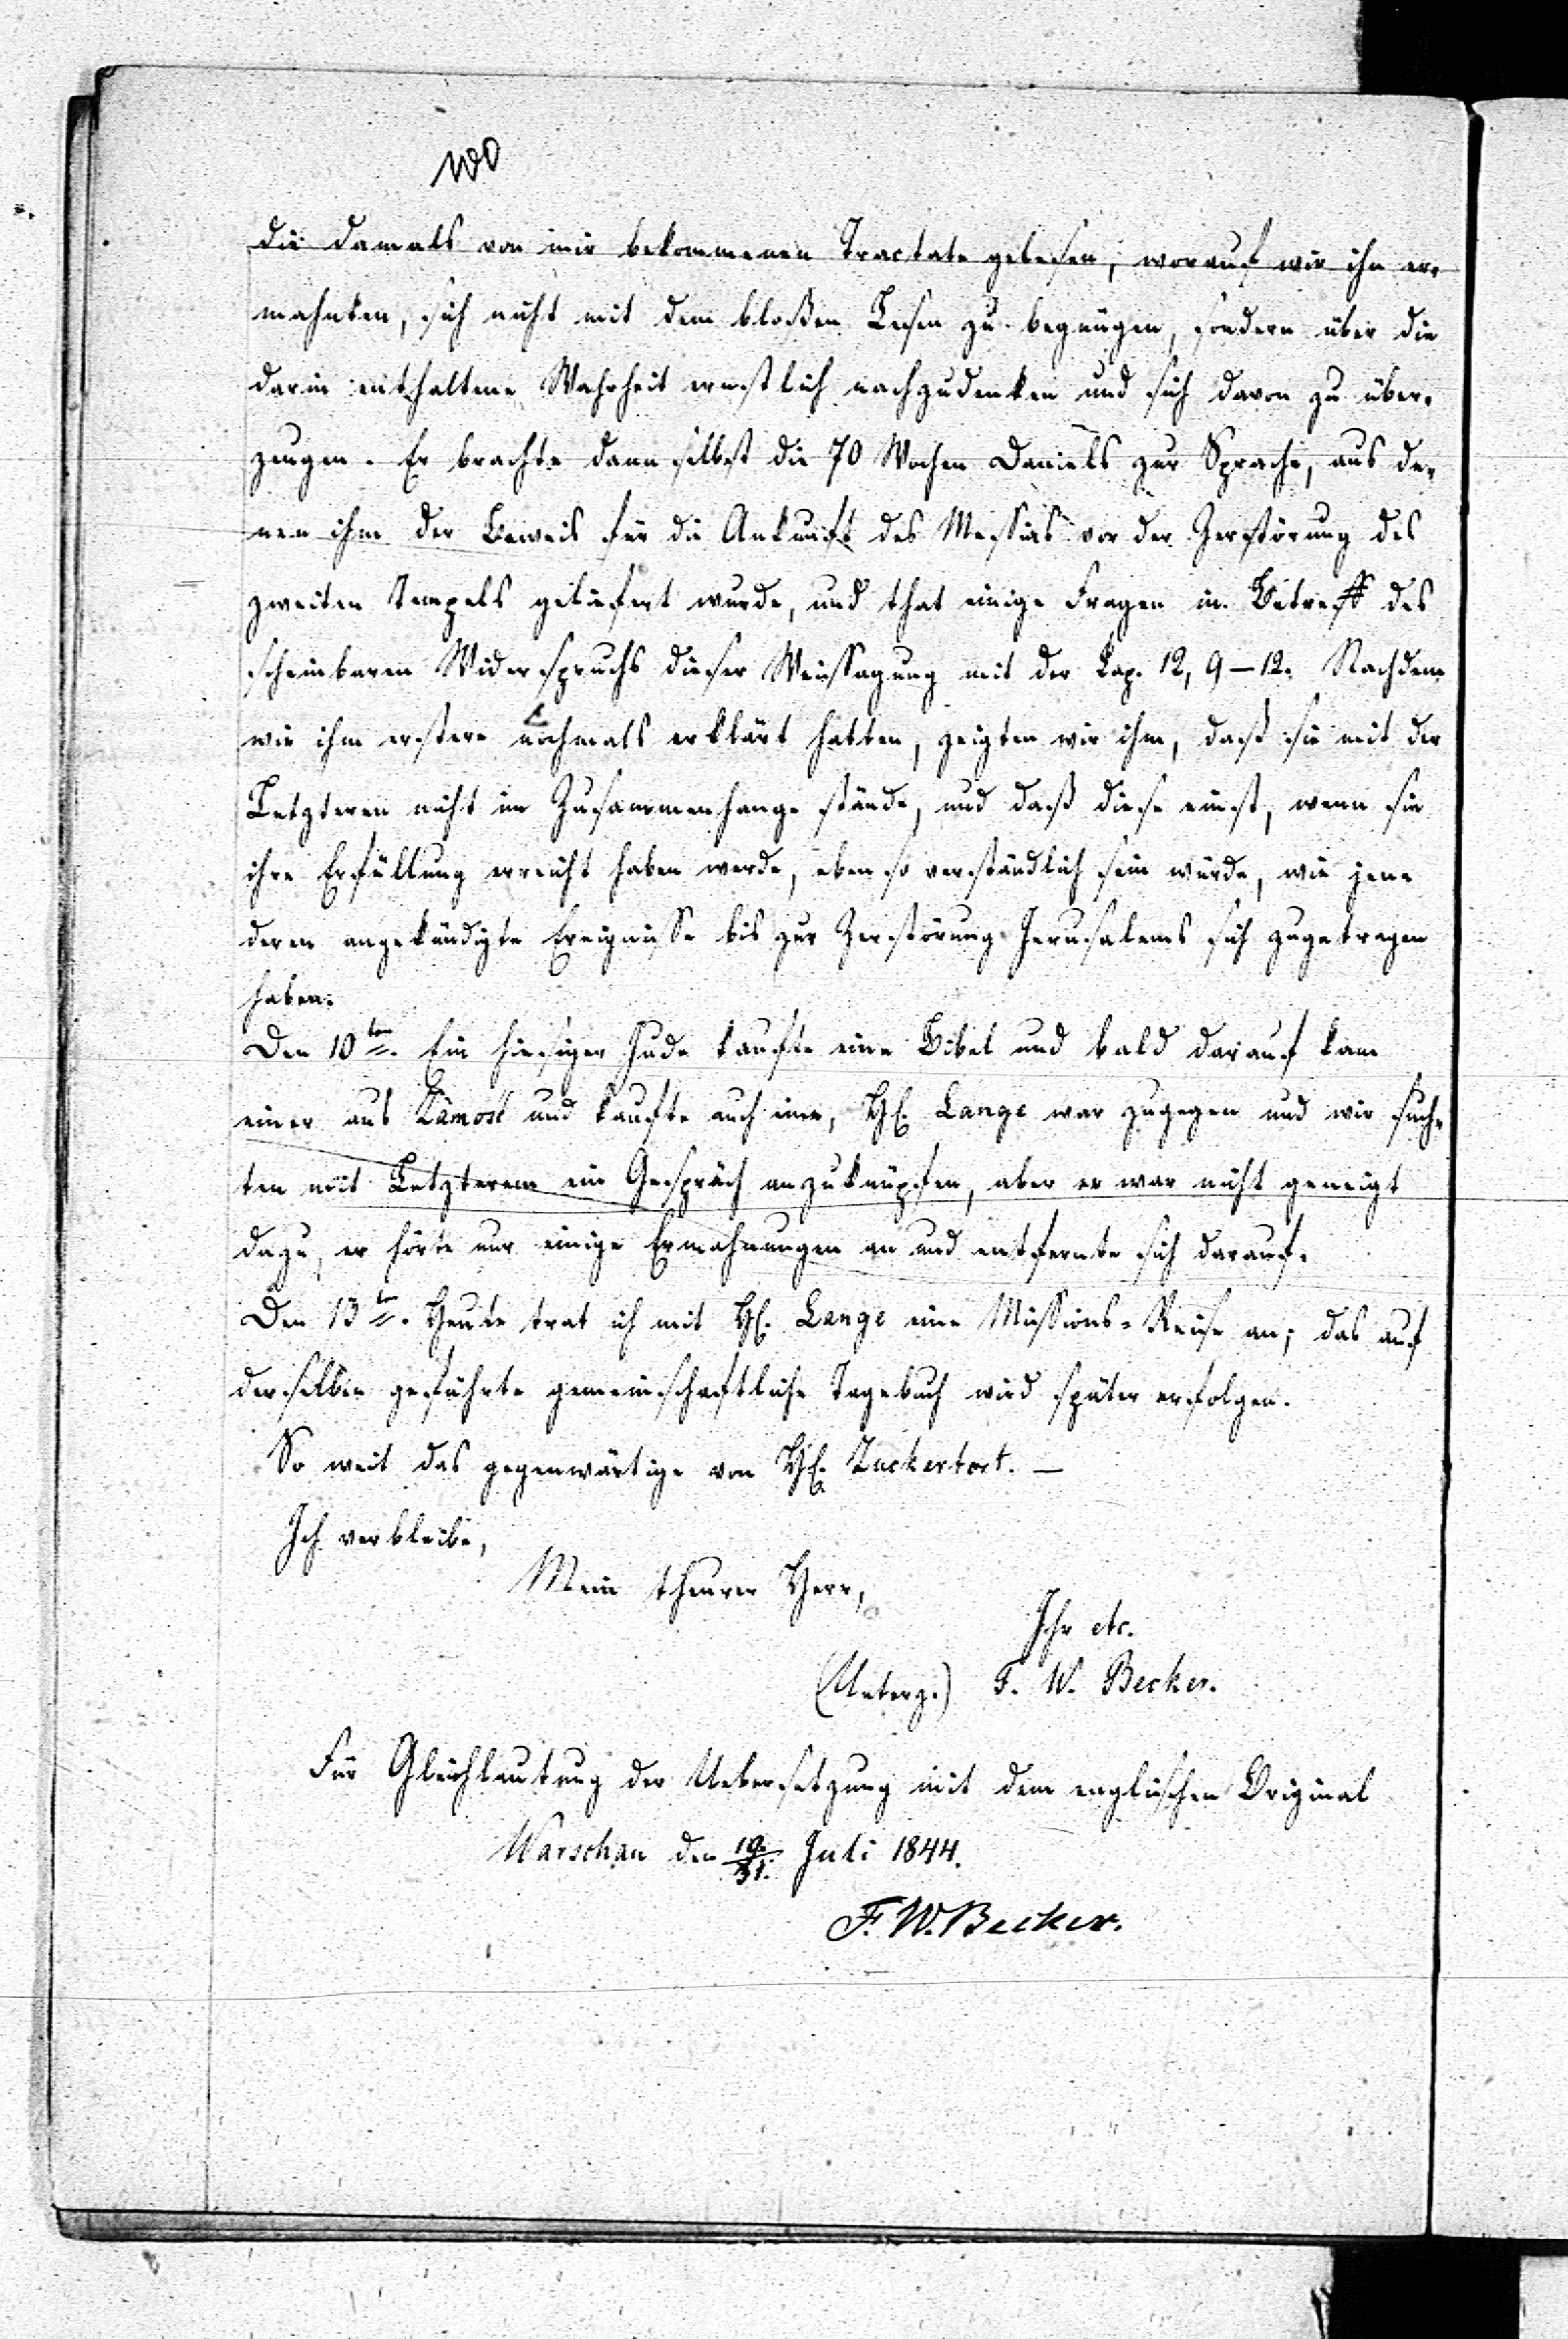 die damals von mir bekommenen Tractate gelesen, worauf wir ihn er-
mahnten, sich nicht mit dem bloßen Lesen zu begnügen, sondern über die
darin enthaltene Wahrheit ernstlich nachzudenken und sich davon zu über-
zeugen. Er brachte dann selbst die 70 Wochen Daniels zur Sprache, aus de-
nen ihm der Beweis für die Ankunft des Messias vor der Zerstörung des
zweiten Tempels geliefert wurde, und that einige Fragen in Betreff des
scheinbaren Widerspruchs dieser Weissagung mit der Cap. 12, 9-12. Nachdem
wir ihm erstere nochmals erklärt hatten, zeigten wir ihm, daß sie mit der
Letzteren nicht im Zusammenhange stände, und daß diese einst, wenn sie
ihre Erfüllung erreicht haben werde, eben so verständlich sein würde, wie jene
deren angekündigte Ereignisse bis zur Zerstörung Jerusalems sich zugetragen
haben.
Den 10ten. Ein hiesiger Jude kaufte eine Bibel und bald darauf kam
einer aus Zamość und kaufte auch eine, H. Lange war zugegen und wir such-
ten mit Letzterem ein Gespräch anzuknüpfen, aber er war nicht geneigt
dazu, er hörte nur einige Ermahnungen an und entfernte sich darauf.
Den 13ten. Heute trat ich mit H. Lange eine Missions-Reise an; das auf
derselben geführte gemeinschaftliche Tagebuch wird später erfolgen.
So weit das gegenwärtige von H. Zuckertort. —
Ich verbleibe,
Mein theurer Herr,
Ihr etc.
(Unterz.) F. W. Becker.
Für Gleichlautung der Uebersetzung mit dem englischen Original
Warschau den 19./31. Juli 1844.
F. W. Becker.